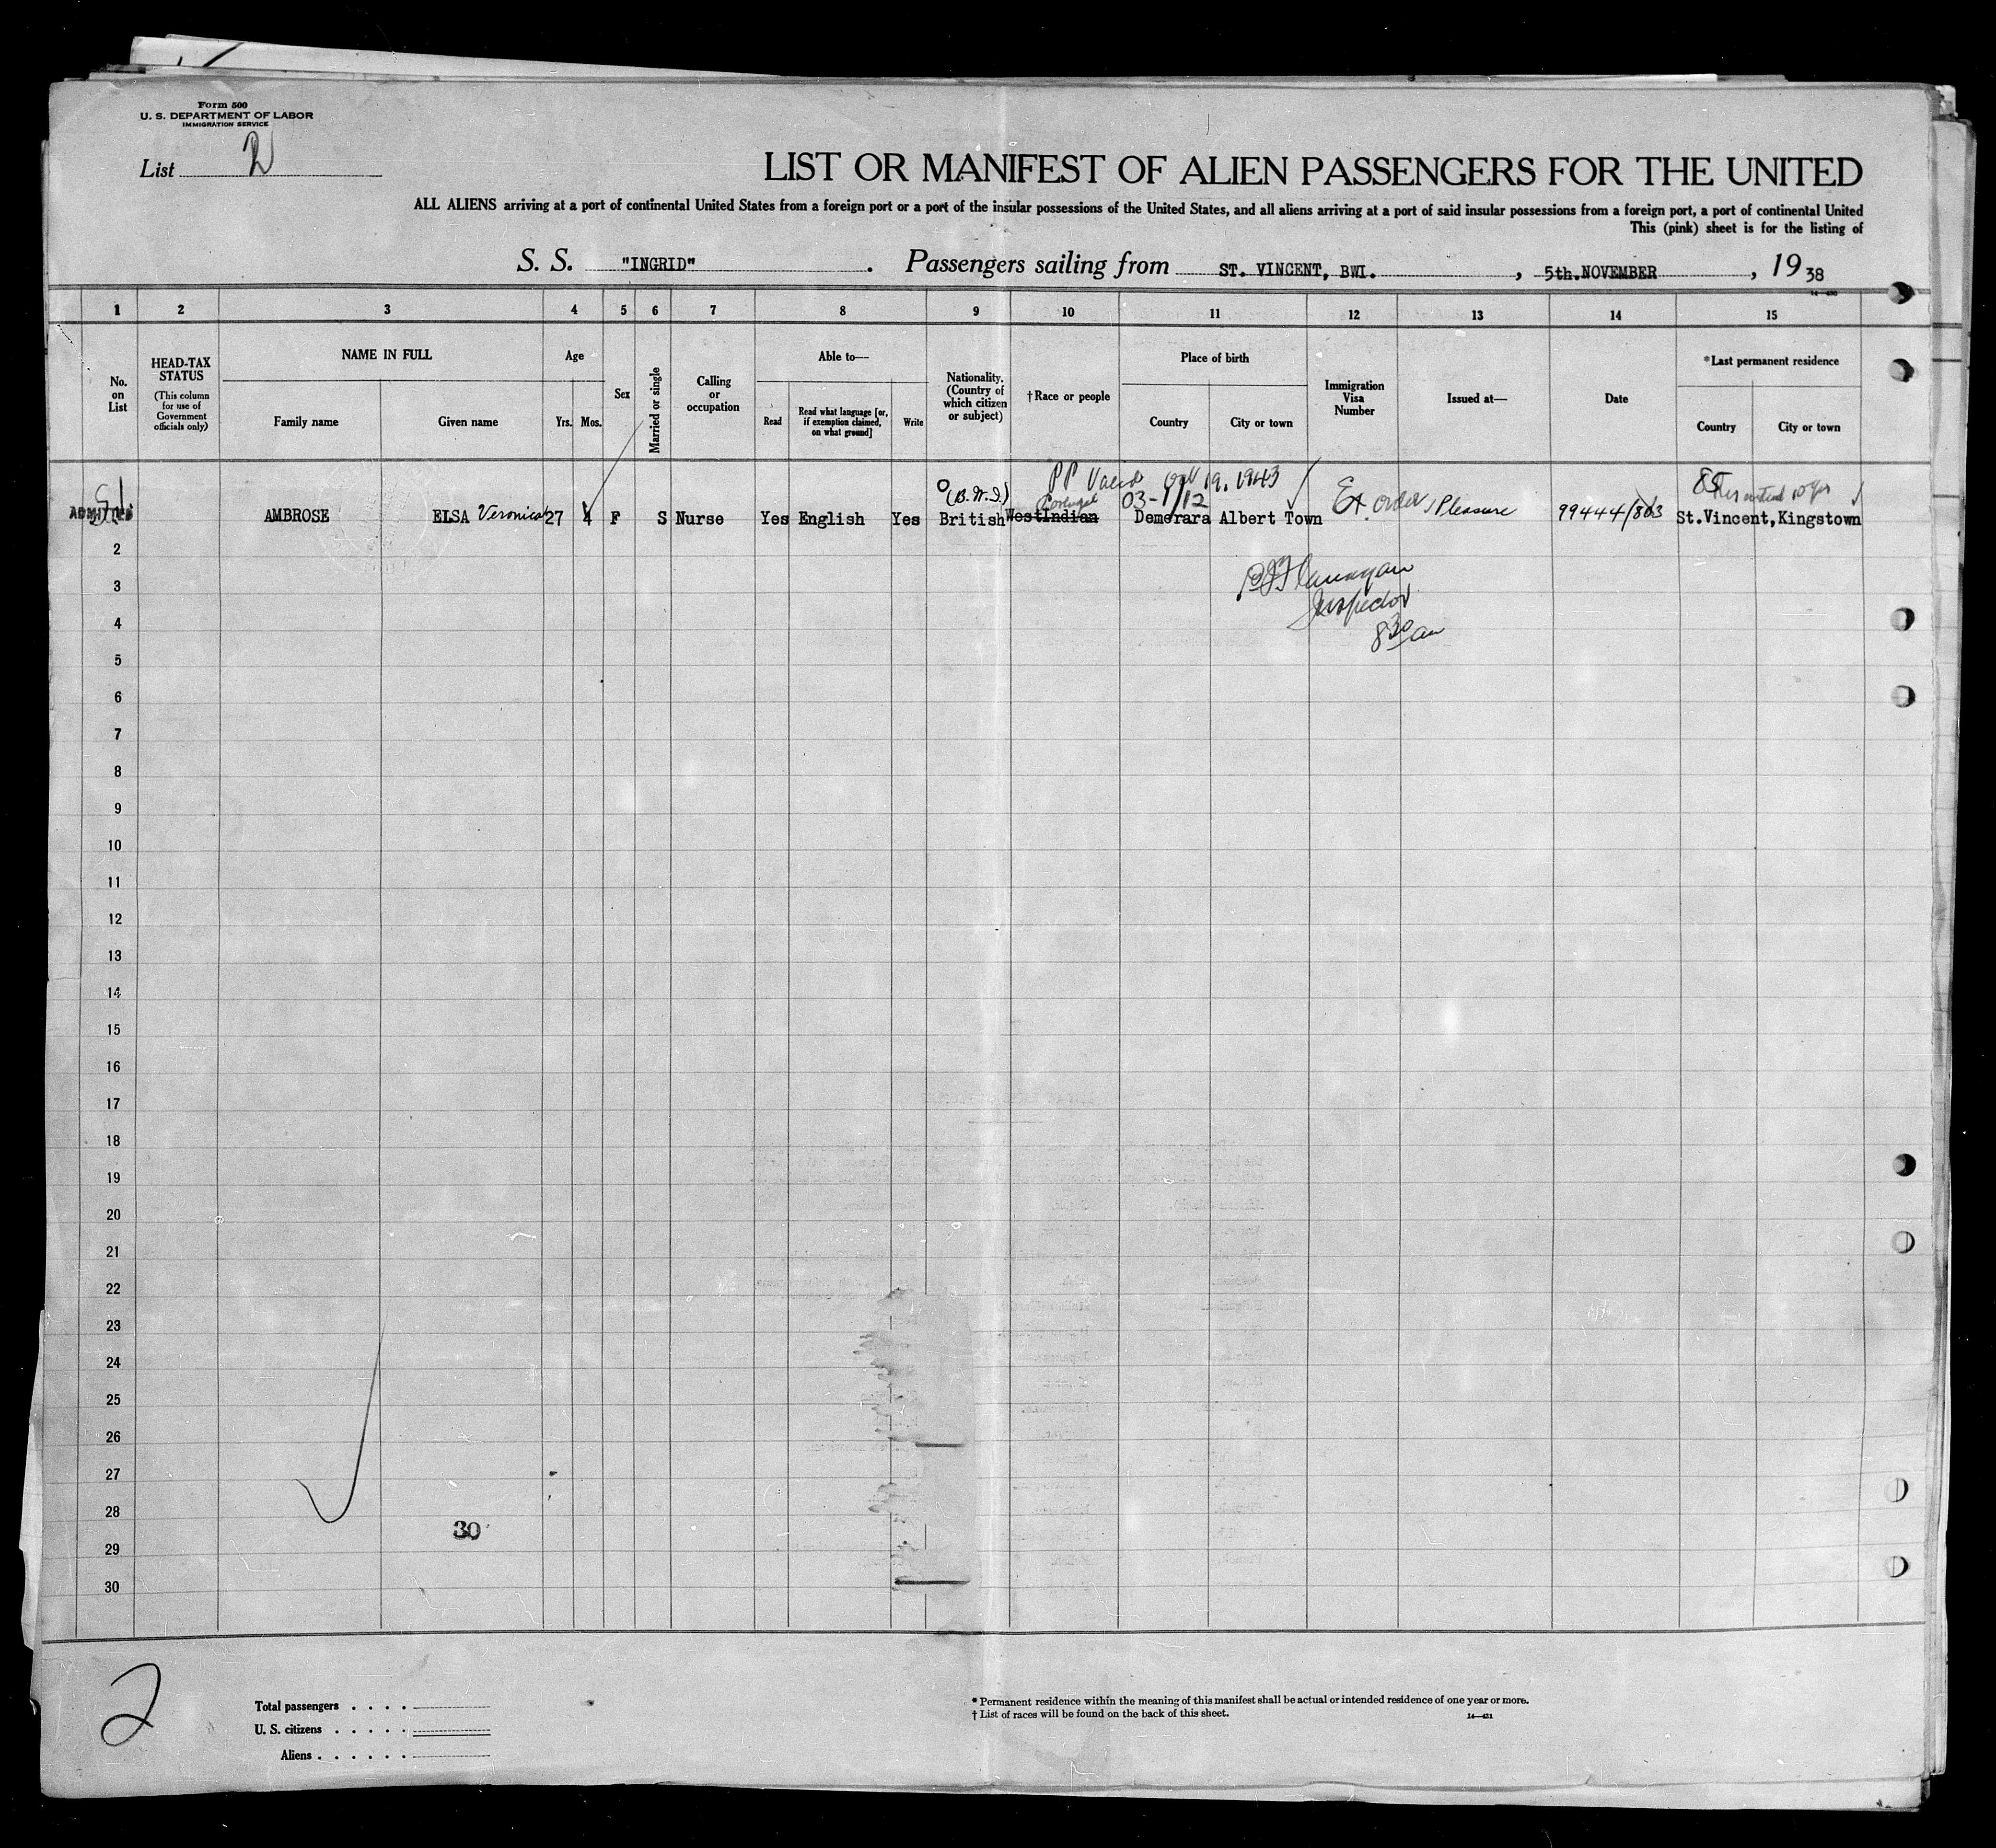 Form 500
U. S. DEPARTMENT OF LABOR
IMMIGRATION SERVICE
List 2
LIST OR MANIFEST OF ALIEN PASSENGERS FOR THE UNITED
ALL ALIENS arriving at a port of continental United States from a foreign port or a port of the insular possessions of the United States, and all aliens arriving at a port of said insular possessions from a foreign port, a port of continental United
This (pink) sheet is for the listing of
S. S. "INGRID" . Passengers sailing from ST. VINCENT, BWI. , 5th.NOVEMBER , 1938
1 2 3 4 5 6 7 8 9 10 11 12 13 14 15
No. on List
HEAD-TAX STATUS
(This column for use of Government officials only)
NAME IN FULL
Family name
Given name
Age
Yrs. Mos.
Sex
Married or single
Calling or occupation
Able to—
Read
Read what language [or, if exemption claimed, on what ground]
Write
Nationality. (Country of which citizen or subject)
†Race or people
Place of birth
Country
City or town
Immigration Visa Number
Issued at—
Date
*Last permanent residence
Country
City or town
PP Valid Oct 19, 1943
(B.W.I.) 03-1/12
ADMITTED AMBROSE ELSA Veronica 27 4 F S Nurse Yes English Yes British WestIndian Demerara Albert Town Ex. order, Pleasure 99444/803 St.Vincent, Kingstown
Inspector
8 30 am
2
3
4
5
6
7
8
9
10
11
12
13
14
15
16
17
18
19
20
21
22
23
24
25
26
27
28
30
29
30
2
Total passengers . . . .
U. S. citizens . . . . .
Aliens . . . . . .
* Permanent residence within the meaning of this manifest shall be actual or intended residence of one year or more.
† List of races will be found on the back of this sheet.
14—421